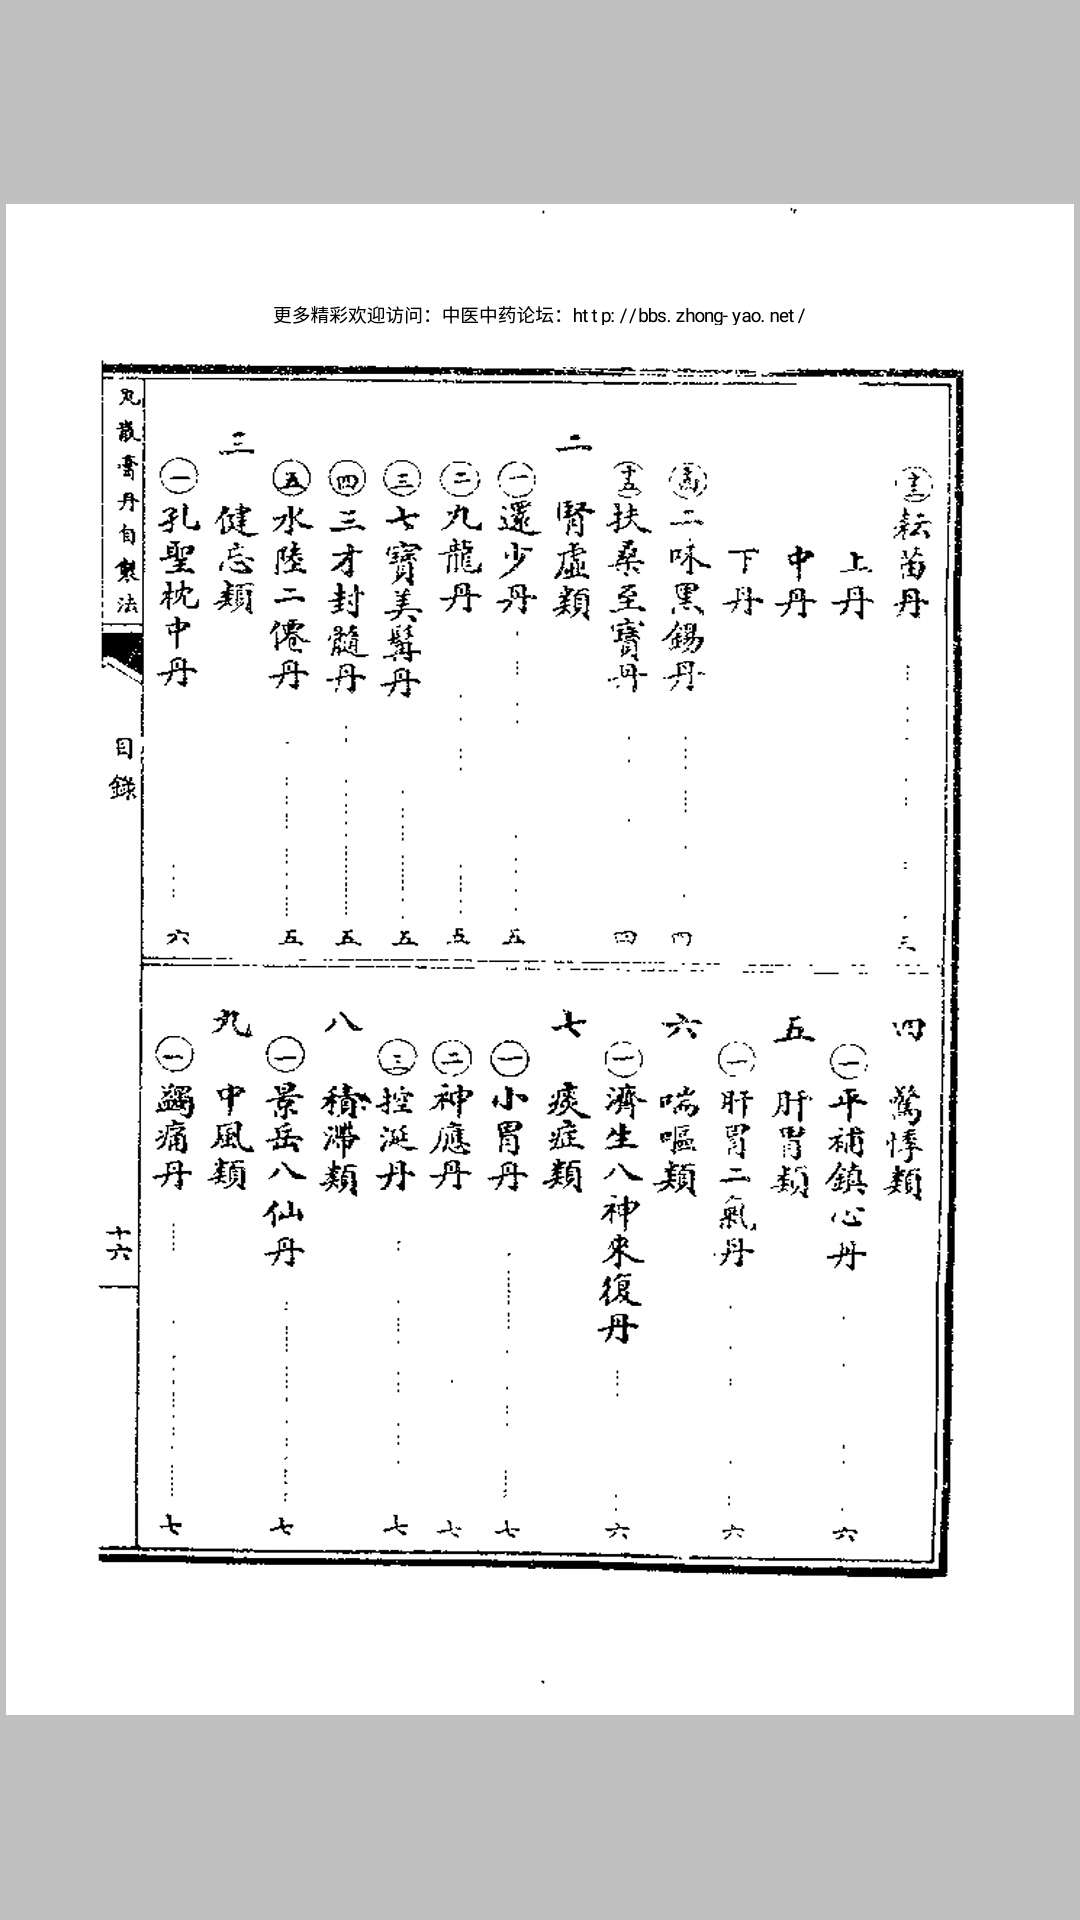 更多精彩欢迎访问：中医中药论坛：http://bbs.zhong-yao.net/
㊂耘苗丹 三
上丹
中丹
下丹
二味黑錫丹 四
扶桑至寶丹 四
二 腎虛類
㊀還少丹 五
㊁九龍丹 五
㊂七寶美髯丹 五
㊃三才封髓丹 五
㊄水陸二僊丹 五
三 健忘類
㊀孔聖枕中丹 六
四 驚悸類
㊀平補鎮心丹 六
五 肝胃類
㊀肝胃二氣丹 六
六 喘嘔類
㊀濟生八神來復丹 六
七 痰症類
㊀小胃丹 七
㊁神應丹 七
㊂控涎丹 七
八 積滯類
㊀景岳八仙丹 七
九 中風類
㊀蠲痛丹 七
丸散膏丹自製法
目錄
十六